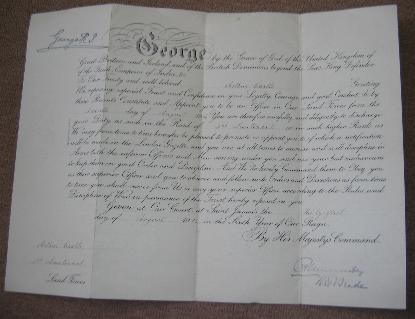 George R.I.
George by the Grace of God, of the United Kingdom of
Great Britain and Ireland, and of the British Dominions beyond the Seas, King, Defender
of the Faith, Emperor of India, &c.
To Our Trusty and well beloved Greeting
We reposing especial Trust and Confidence in your Loyalty, Courage, and good Conduct, do by
these Presents Constitute and Appoint you to be an Officer in Our Land Forces from the
day of You are therefore carefully and diligently to discharge
your Duty as such in the Rank of 2nd Lieutenant or in such higher Rank as
We may from time to time hereafter be pleased to promote or appoint you to, of which a notification
will be made in the London Gazette, and you are at all times to exercise and well discipline in
Arms both the inferior Officers and Men serving under you and use your best endeavours
to keep them in good Order and Discipline. And We do hereby Command them to Obey you
as their superior Officer, and you to observe and follow such Orders and Directions as from time
to time you shall receive from Us, or any your superior Officer, according to the Rules and
Discipline of War, in pursuance of the Trust hereby reposed in you.
Given at Our Court, at Saint James's, the
day of August in the Sixth Year of Our Reign.
By His Majesty's Command.
2nd Lieutenant
Land Forces